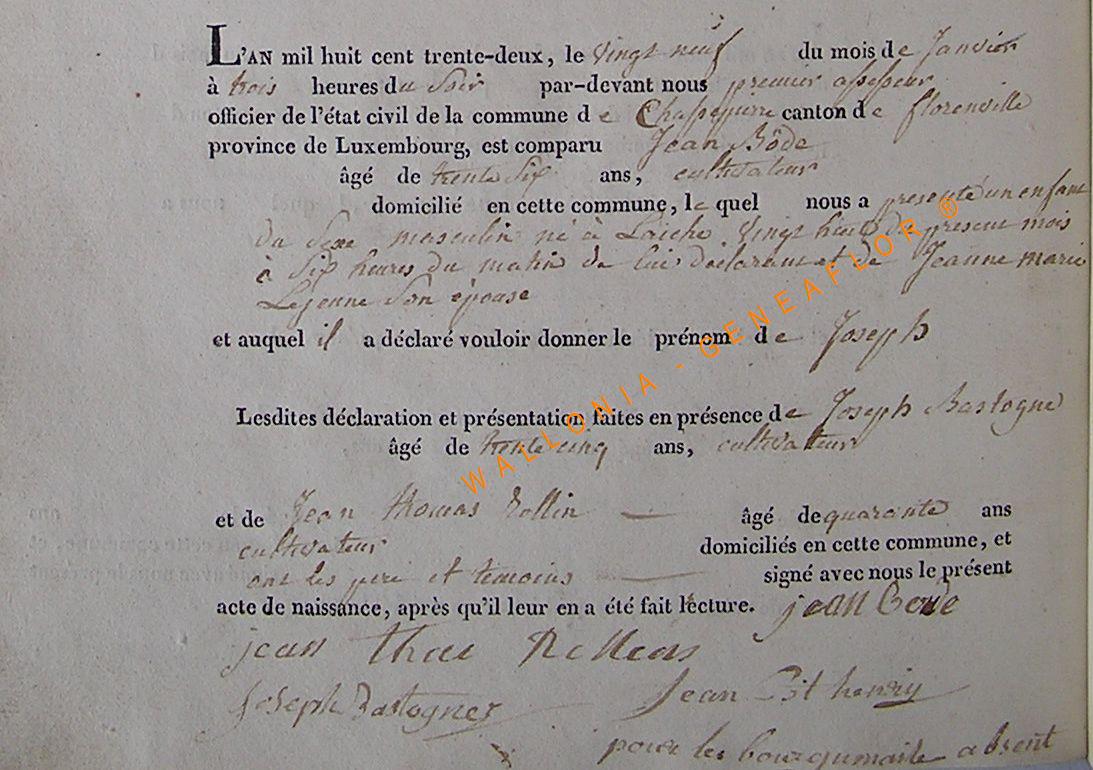 L'AN mil huit cent trente-deux, le vingt neuf du mois de Janvier
à trois heures du soir par-devant nous premier assesseur
officier de l'état civil de la commune de Chassepierre canton de florenville
province de Luxembourg, est comparu Jean Böde
âgé de trente six ans, cultivateur
domicilié en cette commune, le quel nous a presenté un enfant
du sexe masculin né à Laiche vingt huit du present mois
à six heures du matin de lui déclarant et de Jeanne marie
Lejeune son épouse
et auquel il a déclaré vouloir donner le prénom de Joseph
Lesdites déclaration et présentation faites en présence de Joseph Bastogne
âgé de trente cinq ans, cultivateur
et de Jean thomas Rollin âgé de quarante ans
cultivateur domiciliés en cette commune, et
ont les pere et temoins signé avec nous le présent
acte de naissance, après qu'il leur en a été fait lecture. jean Bode
jean
Joseph Bastogne Jean Bt henry
pour les bourgumaite absent
WALLONIA - GENEAFLOR ®